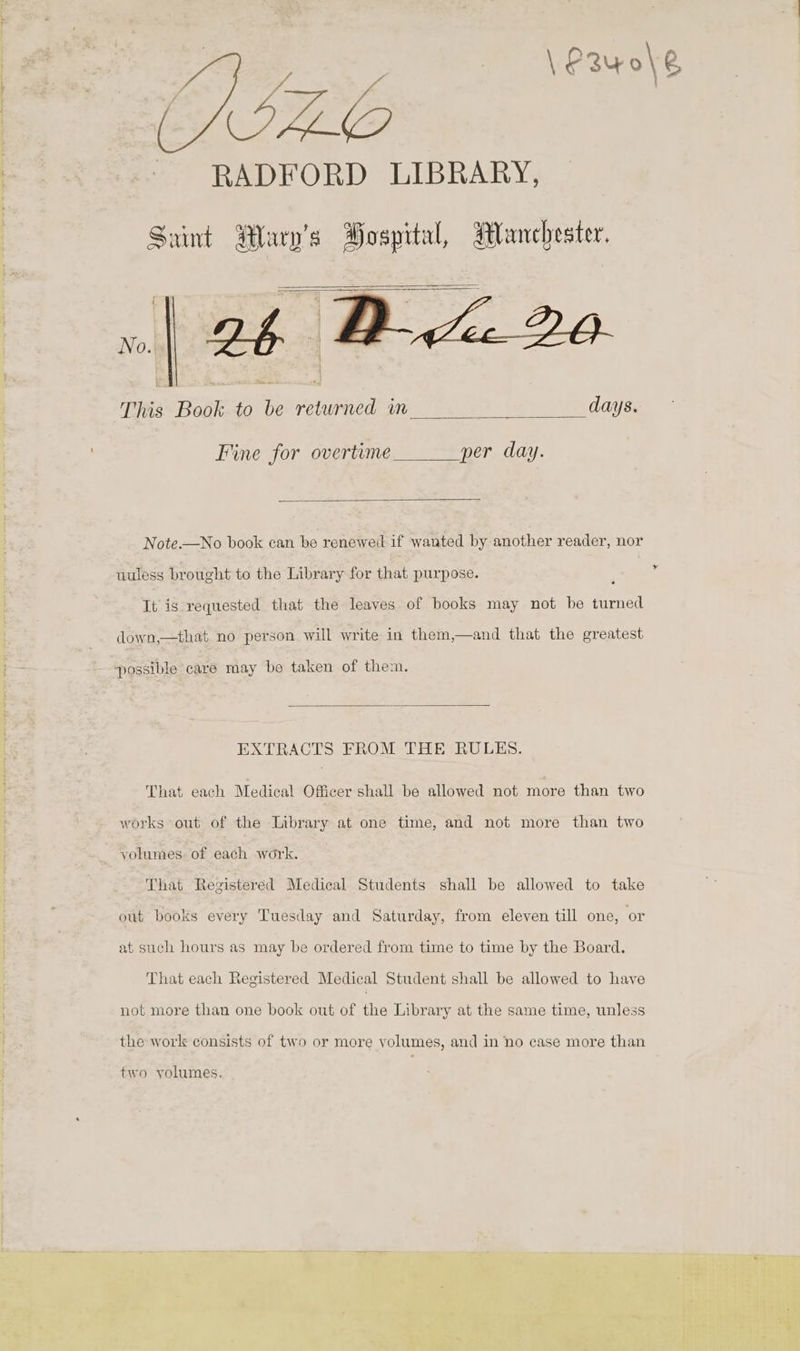 RADFORD LIBRARY,
Saint Mary's Hospital, Manchester.
No. 26 D
20
This Book to be returned in days.
Fine for overtime per day.
Note.—No book can be renewed if wanted by another reader, nor
unless brought to the Library for that purpose.
It is requested that the leaves of books may not be turned
down,—that no person will write in them,—and that the greatest
possible care may be taken of them.
EXTRACTS FROM THE RULES.
That each Medical Officer shall be allowed not more than two
works out of the Library at one time, and not more than two
volumes of each work.
That Registered Medical Students shall be allowed to take
out books every Tuesday and Saturday, from eleven till one, or
at such hours as may be ordered from time to time by the Board.
That each Registered Medical Student shall be allowed to have
not more than one book out of the Library at the same time, unless
the work consists of two or more volumes, and in no case more than
two volumes.